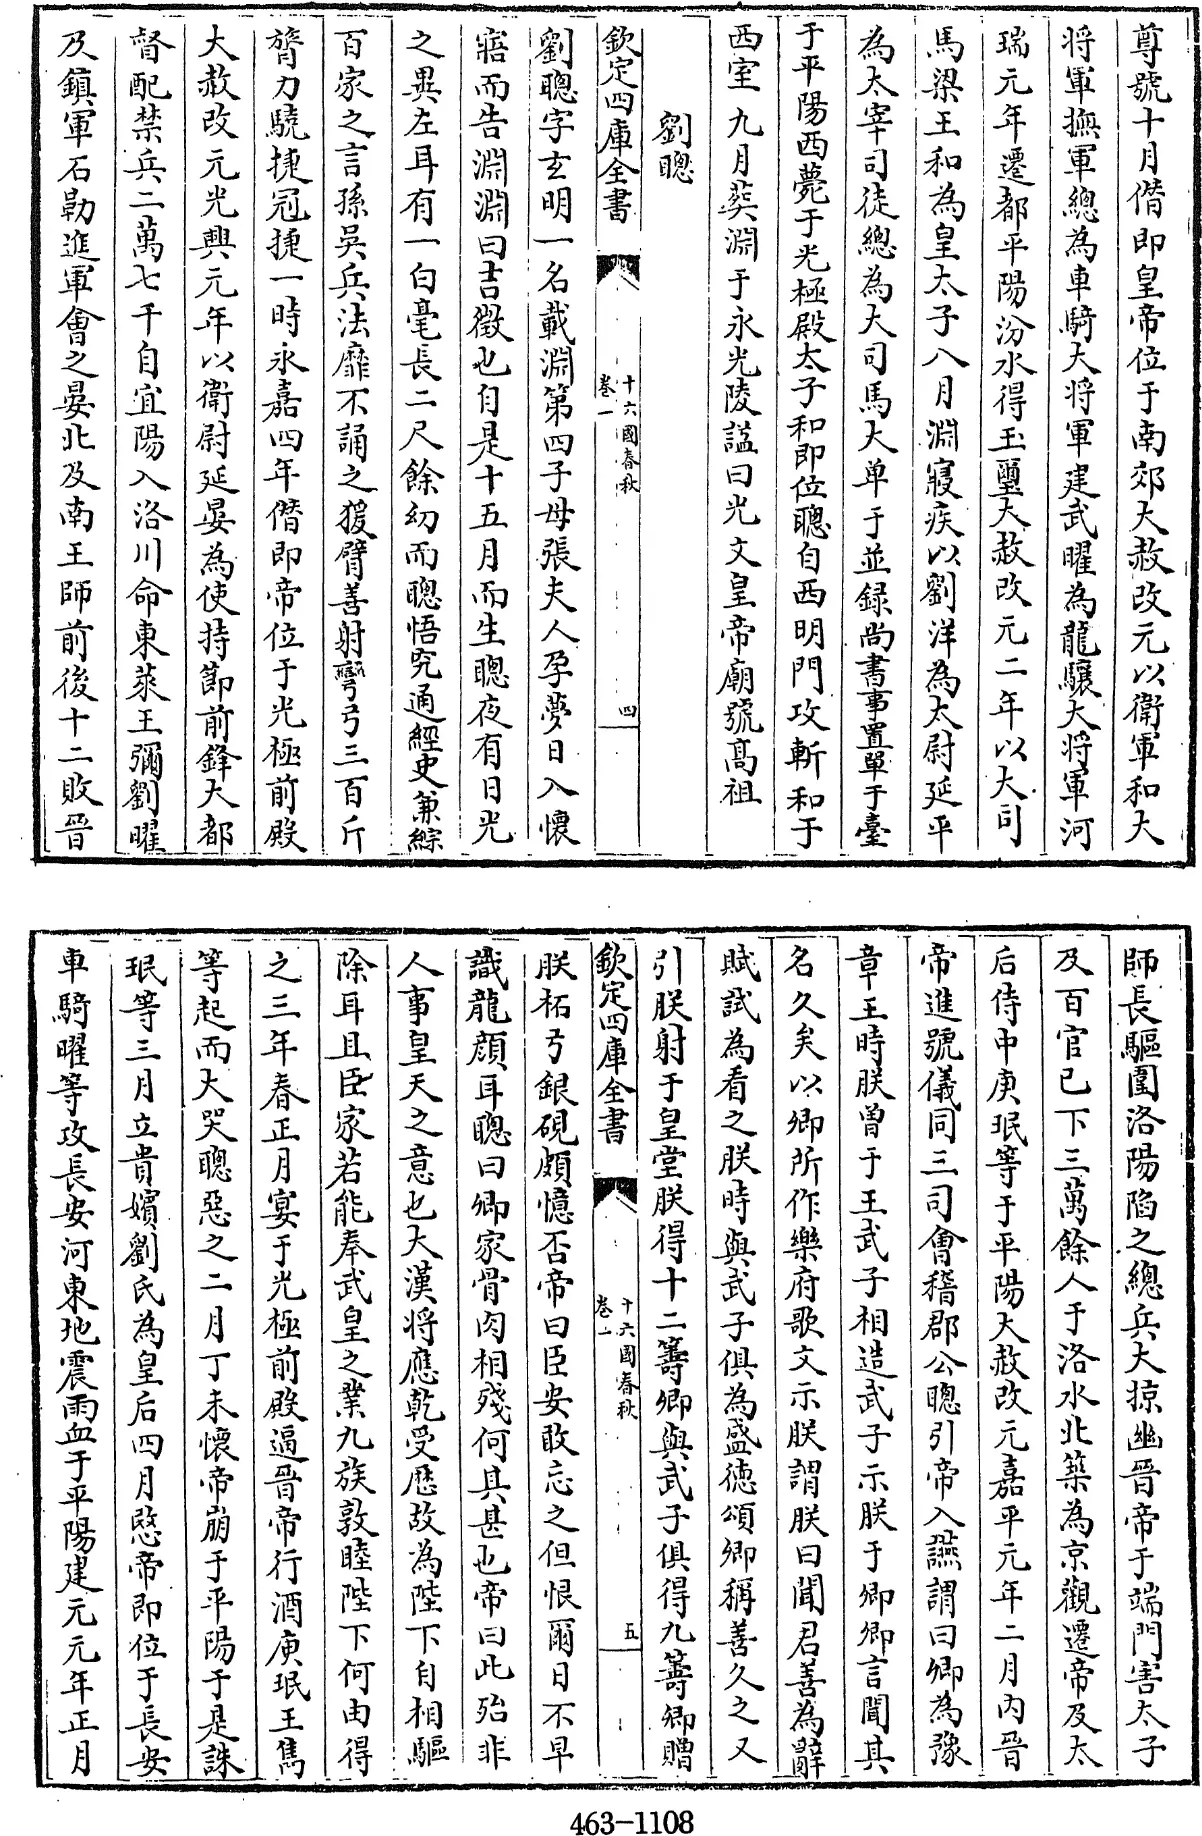 尊號十月僭即皇帝位于南郊大赦改元以衛軍和大
將軍撫軍總為車騎大將軍建武曜為龍驤大將軍河
瑞元年遷都平陽汾水得玉璽大赦改元二年以大司
馬梁王和為皇太子八月淵寢疾以劉洋為太尉延平
為太宰司徒總為大司馬大单于並録尚書事置單于臺
于平陽西薨于光極殿太子和即位聰自西明門攻斬和于
西室九月葬淵于永光陵諡曰光文皇帝廟號髙祖
劉聰
欽定四庫全書
十六國春秋
卷一
四
劉聰字玄明一名載淵第四子母張夫人孕夢日入懐
寤而告淵淵曰吉徵也自是十五月而生聰夜有日光
之異左耳有一白毫長二尺餘幼而聰悟究通經史兼綜
百家之言孫吴兵法靡不誦之猨臂善射彎弓三百斤
膂力驍捷冠捷一時永嘉四年僭即帝位于光極前殿
大赦改元光興元年以衛尉延晏為使持節前鋒大都
督配禁兵二萬七千自宜陽入洛川命東萊王彌劉曜
及鎮軍石勒進軍會之晏北及南王師前後十二敗晉
師長驅圍洛陽陷之總兵大掠幽晉帝于端門害太子
及百官已下三萬餘人于洛水北築為京觀遷帝及太
后侍中庾珉等于平陽大赦改元嘉平元年二月内晉
帝進號儀同三司會稽郡公聰引帝入讌謂曰卿為豫
章王時朕曽于王武子相造武子示朕于卿卿言聞其
名久矣以卿所作樂府歌文示朕謂朕曰聞君善為辭
賦試為看之朕時與武子俱為盛徳頌卿稱善久之又
引朕射于皇堂朕得十二籌卿與武子俱得九籌卿贈
欽定四庫全書
十六國春秋
卷一
五
朕柘弓銀硯頗憶否帝曰臣安敢忘之但恨爾日不早
識龍顔耳聰曰卿家骨肉相殘何其甚也帝曰此殆非
人事皇天之意也大漢將應乾受厯故為陛下自相驅
除耳且臣家若能奉武皇之業九族敦睦陛下何由得
之三年春正月宴于光極前殿逼晉帝行酒庾珉王雋
等起而大哭聰惡之二月丁未懐帝崩于平陽于是誅
珉等三月立貴嬪劉氏為皇后四月愍帝即位于長安
車騎曜等攻長安河東地震雨血于平陽建元元年正月
463-1108